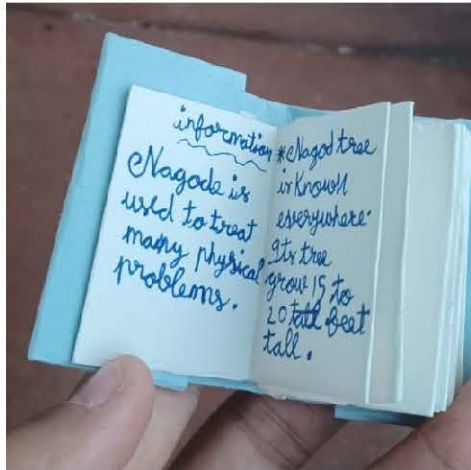 information
Nagode is
used to treat
many physical
problems.
*Nagod tree
is Known
everywhere.
Its tree
grow 15 to
20 feet
tall.